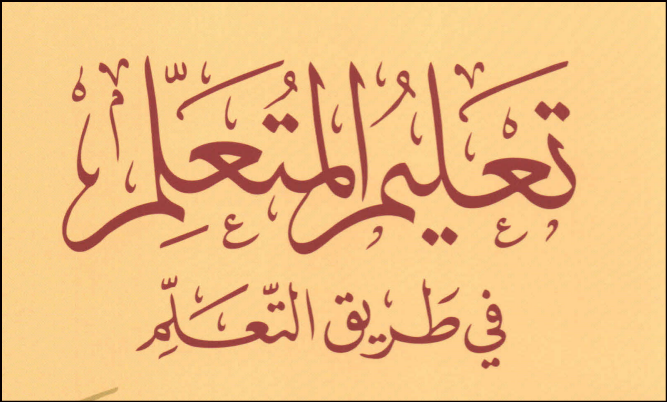 تعليمُ المُتعلِّم
في طَريق التّعَلِّمِ